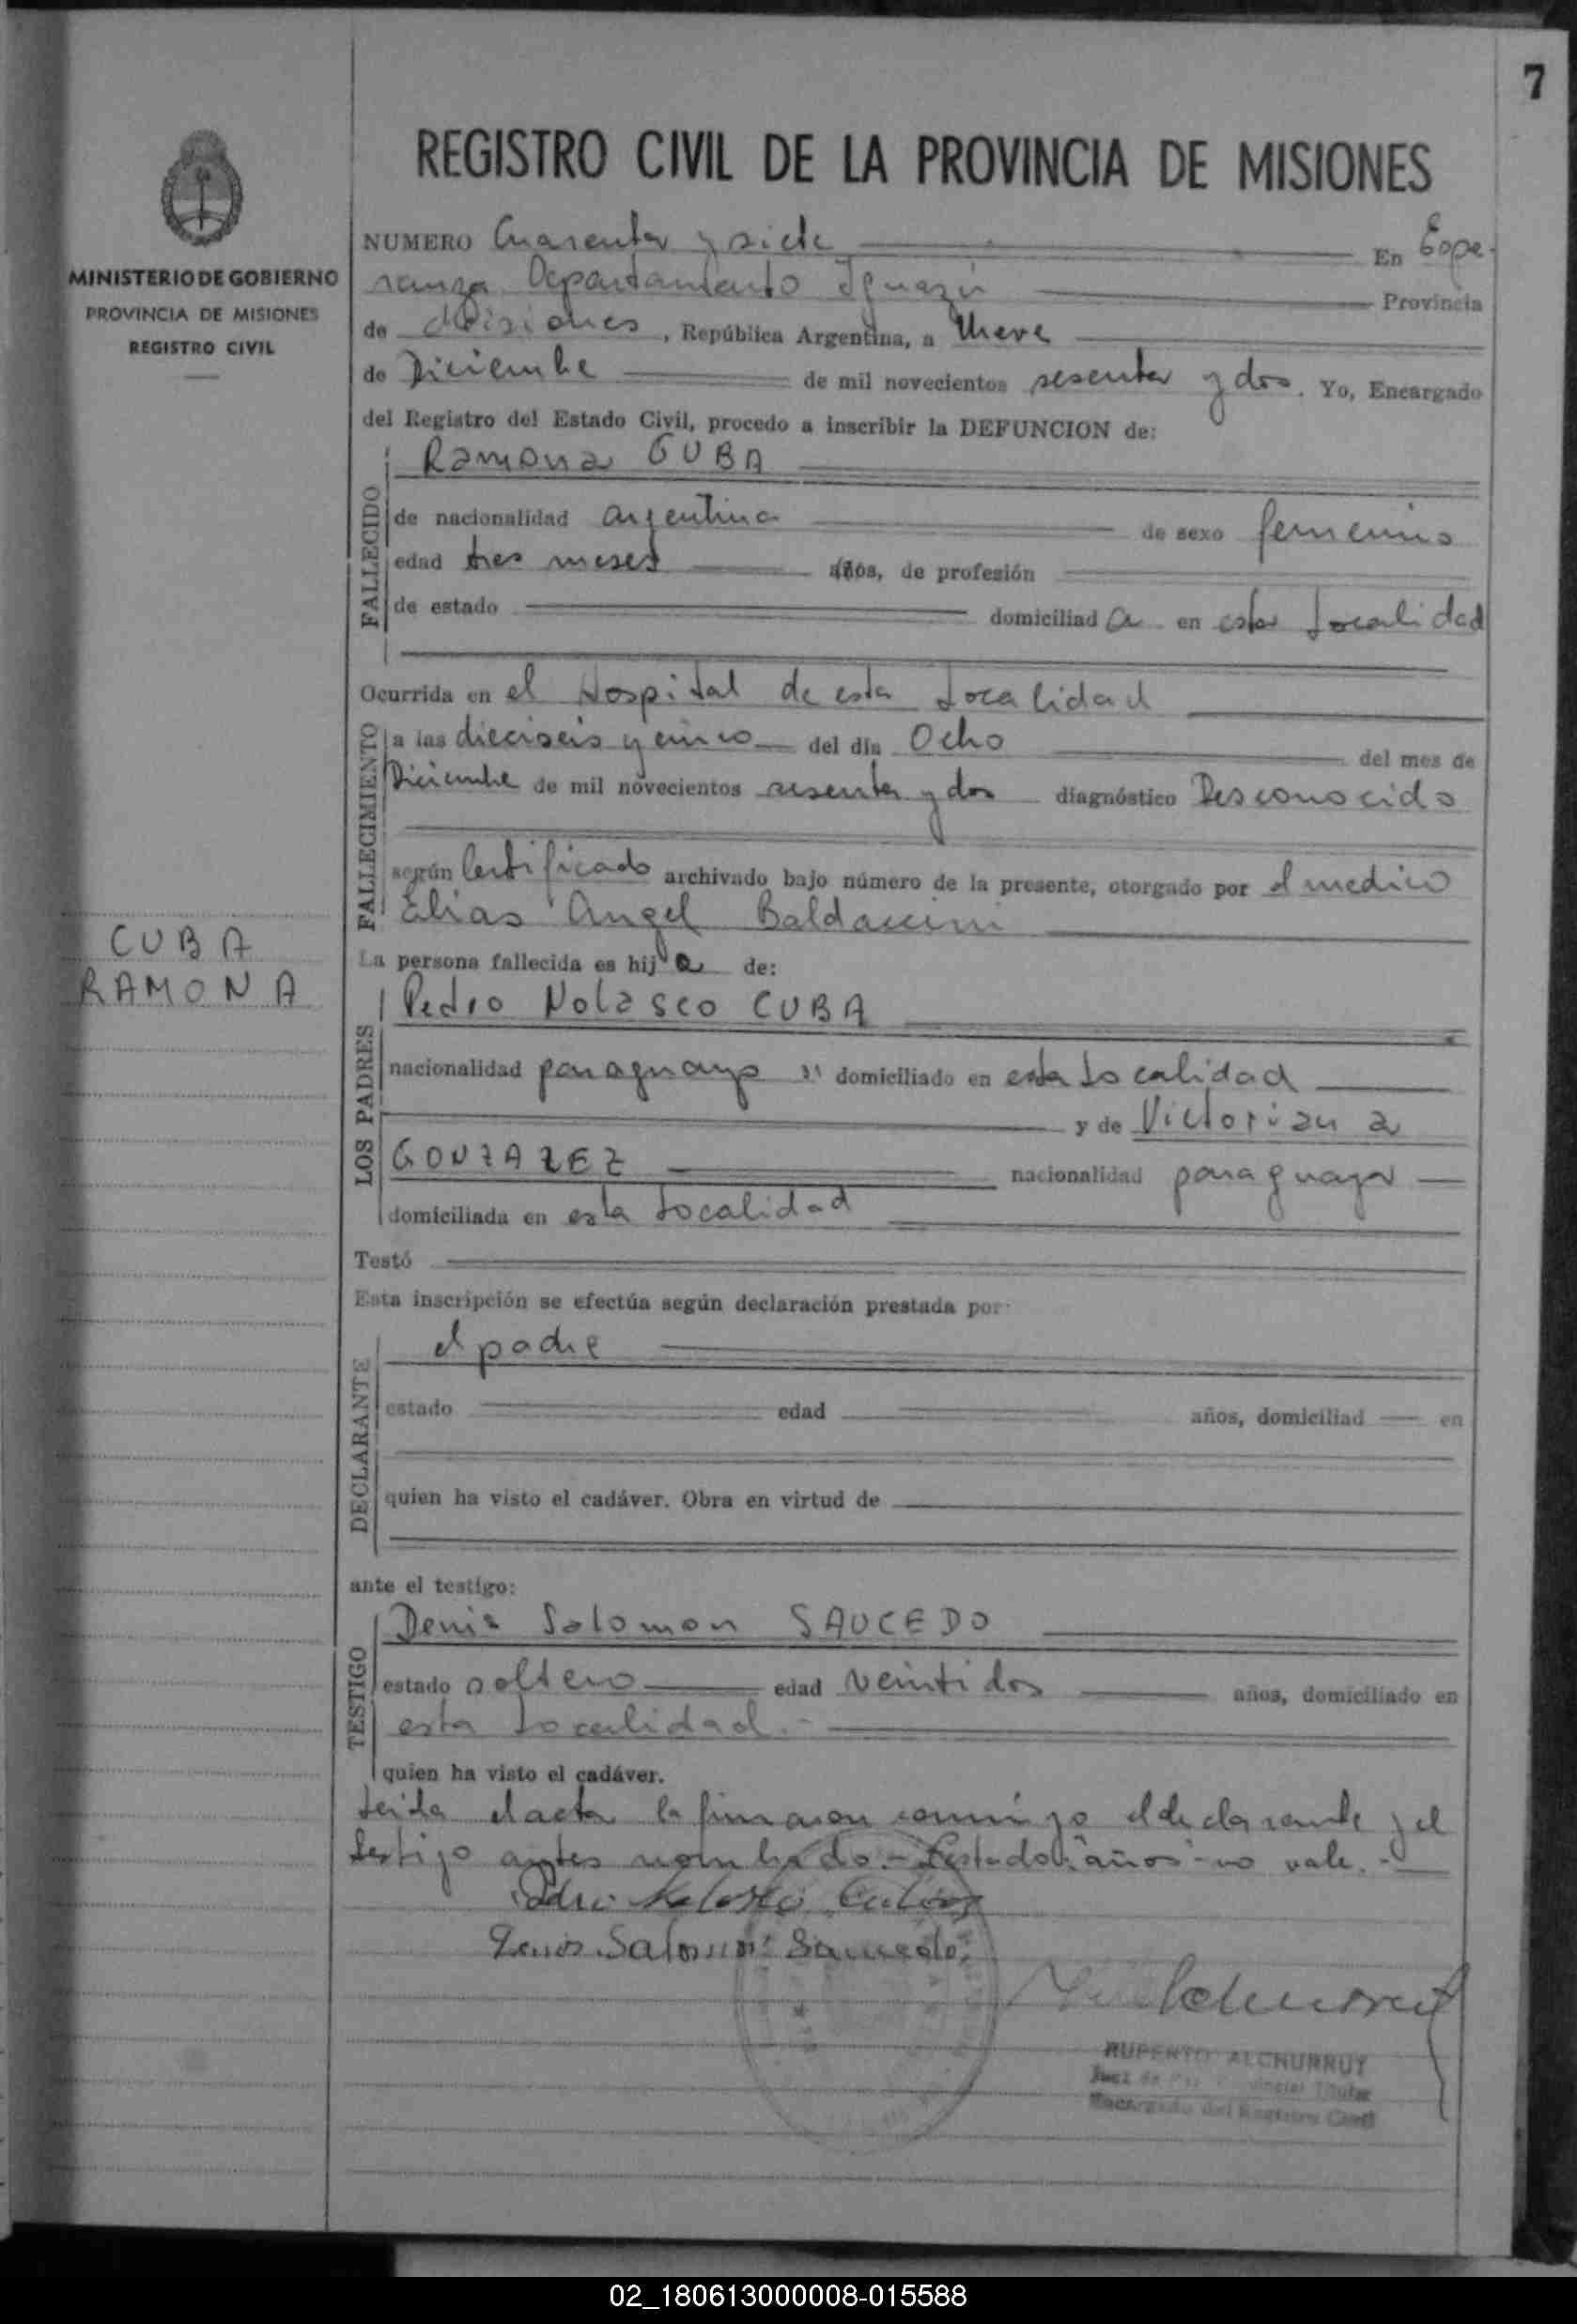 7
REGISTRO CIVIL DE LA PROVINCIA DE MISIONES
MINISTERIO DE GOBIERNO
PROVINCIA DE MISIONES
REGISTRO CIVIL
CUBA
RAMONA
NUMERO Cuarenta y siete En Espe-
ranza Departamento Iguazú Provincia
de Misiones, República Argentina, a Nueve
de Diciembre de mil novecientos sesenta y dos. Yo, Encargado
del Registro del Estado Civil, procedo a inscribir la DEFUNCION de:
FALLECIDO
Ramona CUBA
de nacionalidad argentina de sexo femenino
edad tres meses años, de profesión
de estado domiciliad a en esta Localidad
Ocurrida en el Hospital de esta Localidad
FALLECIMIENTO
a las dieciseis y cinco del día Ocho del mes de
Diciembre de mil novecientos sesenta y dos diagnóstico Desconocido
según Certificado archivado bajo número de la presente, otorgado por el medico
Elias Angel Baldaccini
La persona fallecida es hij a de:
LOS PADRES
Pedro Nolasco CUBA
nacionalidad paraguayo domiciliado en esta Localidad
y de Victoriana
GONZALEZ nacionalidad paraguaya
domiciliada en esta Localidad
Testó
Esta inscripción se efectúa según declaración prestada por
DECLARANTE
el padre
estado edad años, domiciliad en
quien ha visto el cadáver. Obra en virtud de
ante el testigo:
TESTIGO
Denis Solomon SAUCEDO
estado soltero edad veintidos años, domiciliado en
esta Localidad.-
quien ha visto el cadáver.
Leida el acta la firmaron conmigo el declarante y el
testigo antes nombrado.- Testado: "años" no vale.-
Pedro Nolasco
Denis Salomon Saucedo
RUPERTO ALCHURRUT
Juez de Paz Provincial Titular
Encargado del Registro Civil
02_180613000008-015588